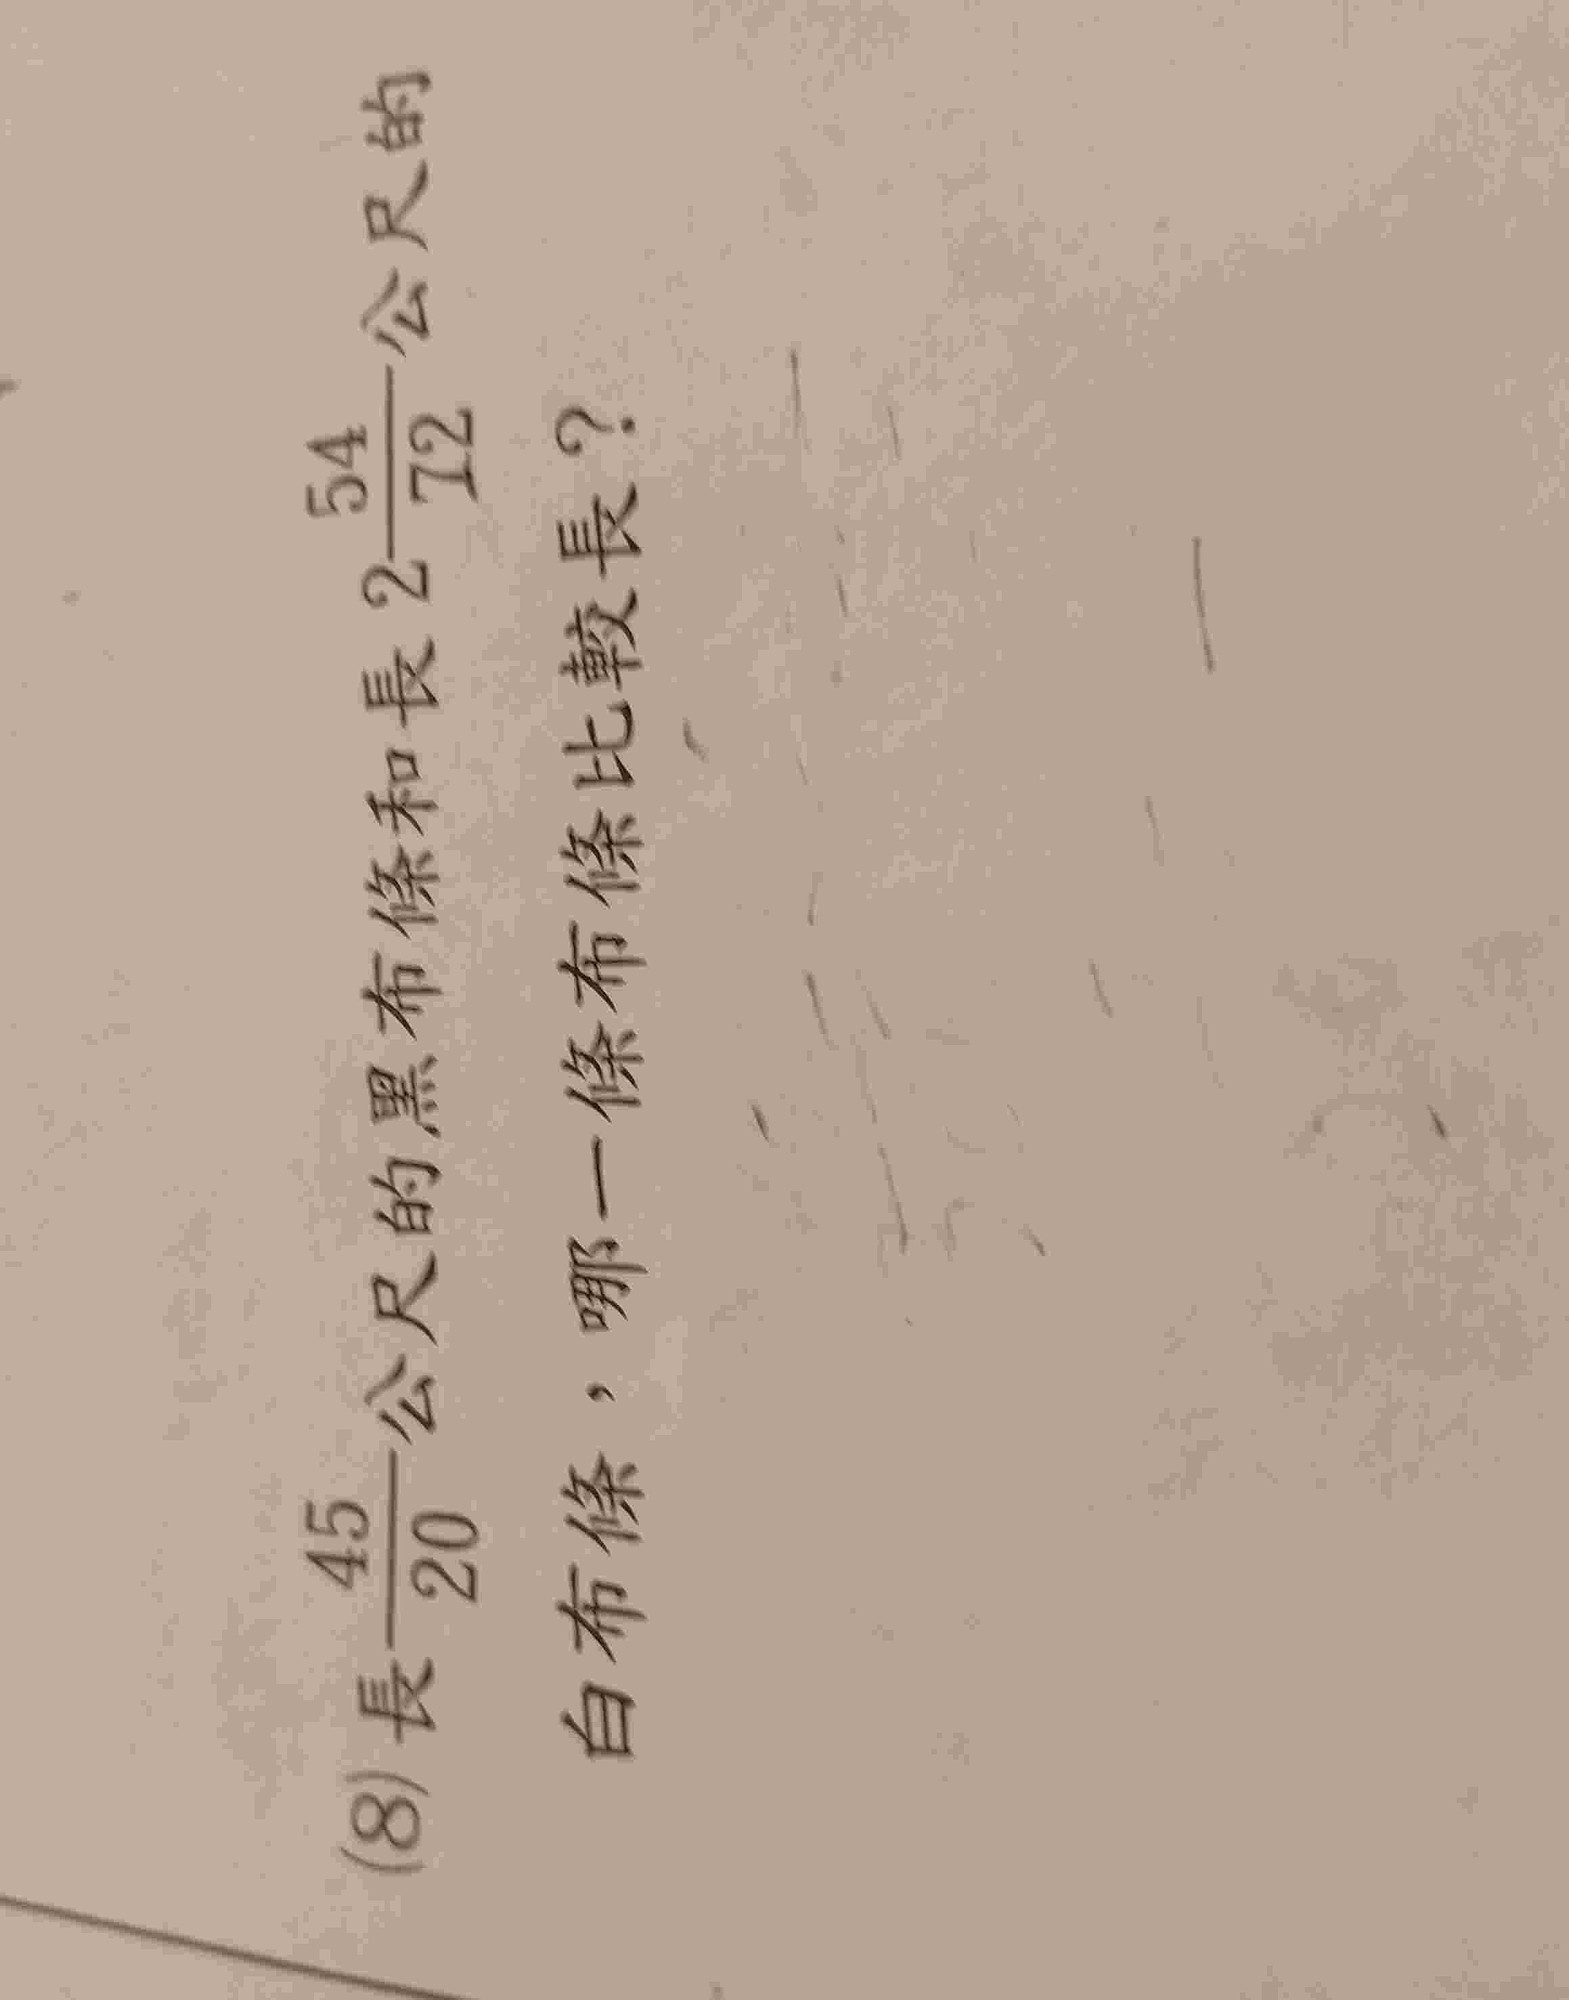 (8) 長 45/20 公尺的黑布條和長 2 54/72 公尺的
白布條，哪一條布條比較長？